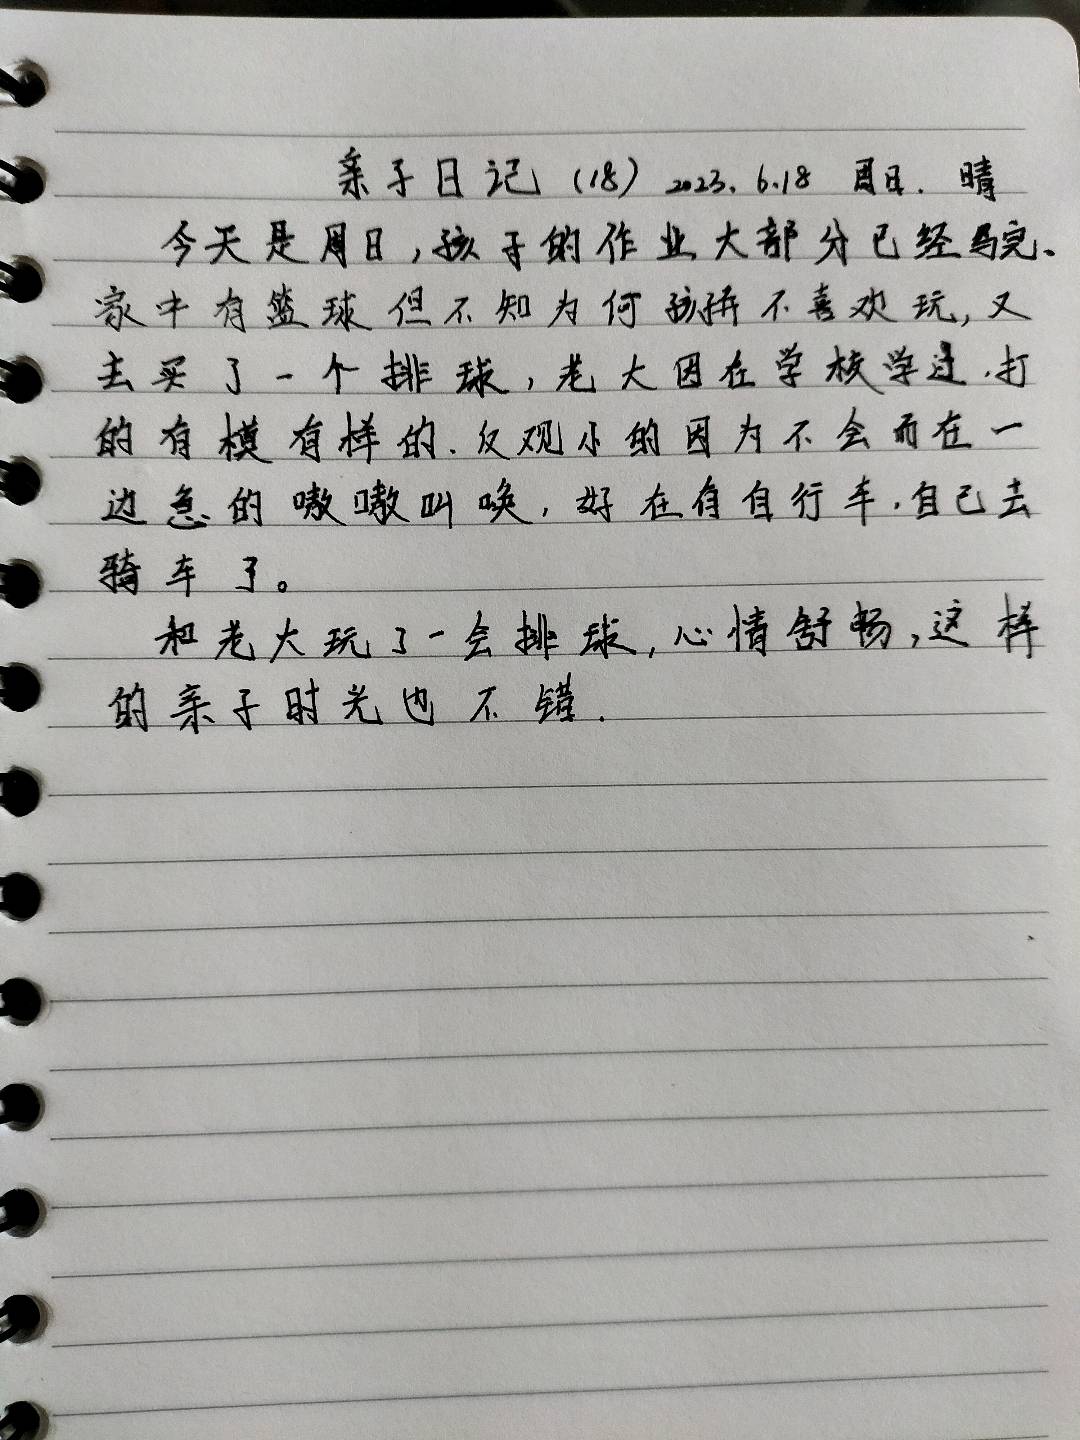 亲子日记（18）2023.6.18 周日.晴
今天是周日,孩子的作业大部分已经写完、
家中有篮球但不知为何孩子不喜欢玩,又
去买了一个排球,老大因在学校学过.打
的有模有样的.反观小的因为不会而在一
边急的嗷嗷叫唤,好在有自行车.自己去
骑车了。
和老大玩了一会排球,心情舒畅,这样
的亲子时光也不错.